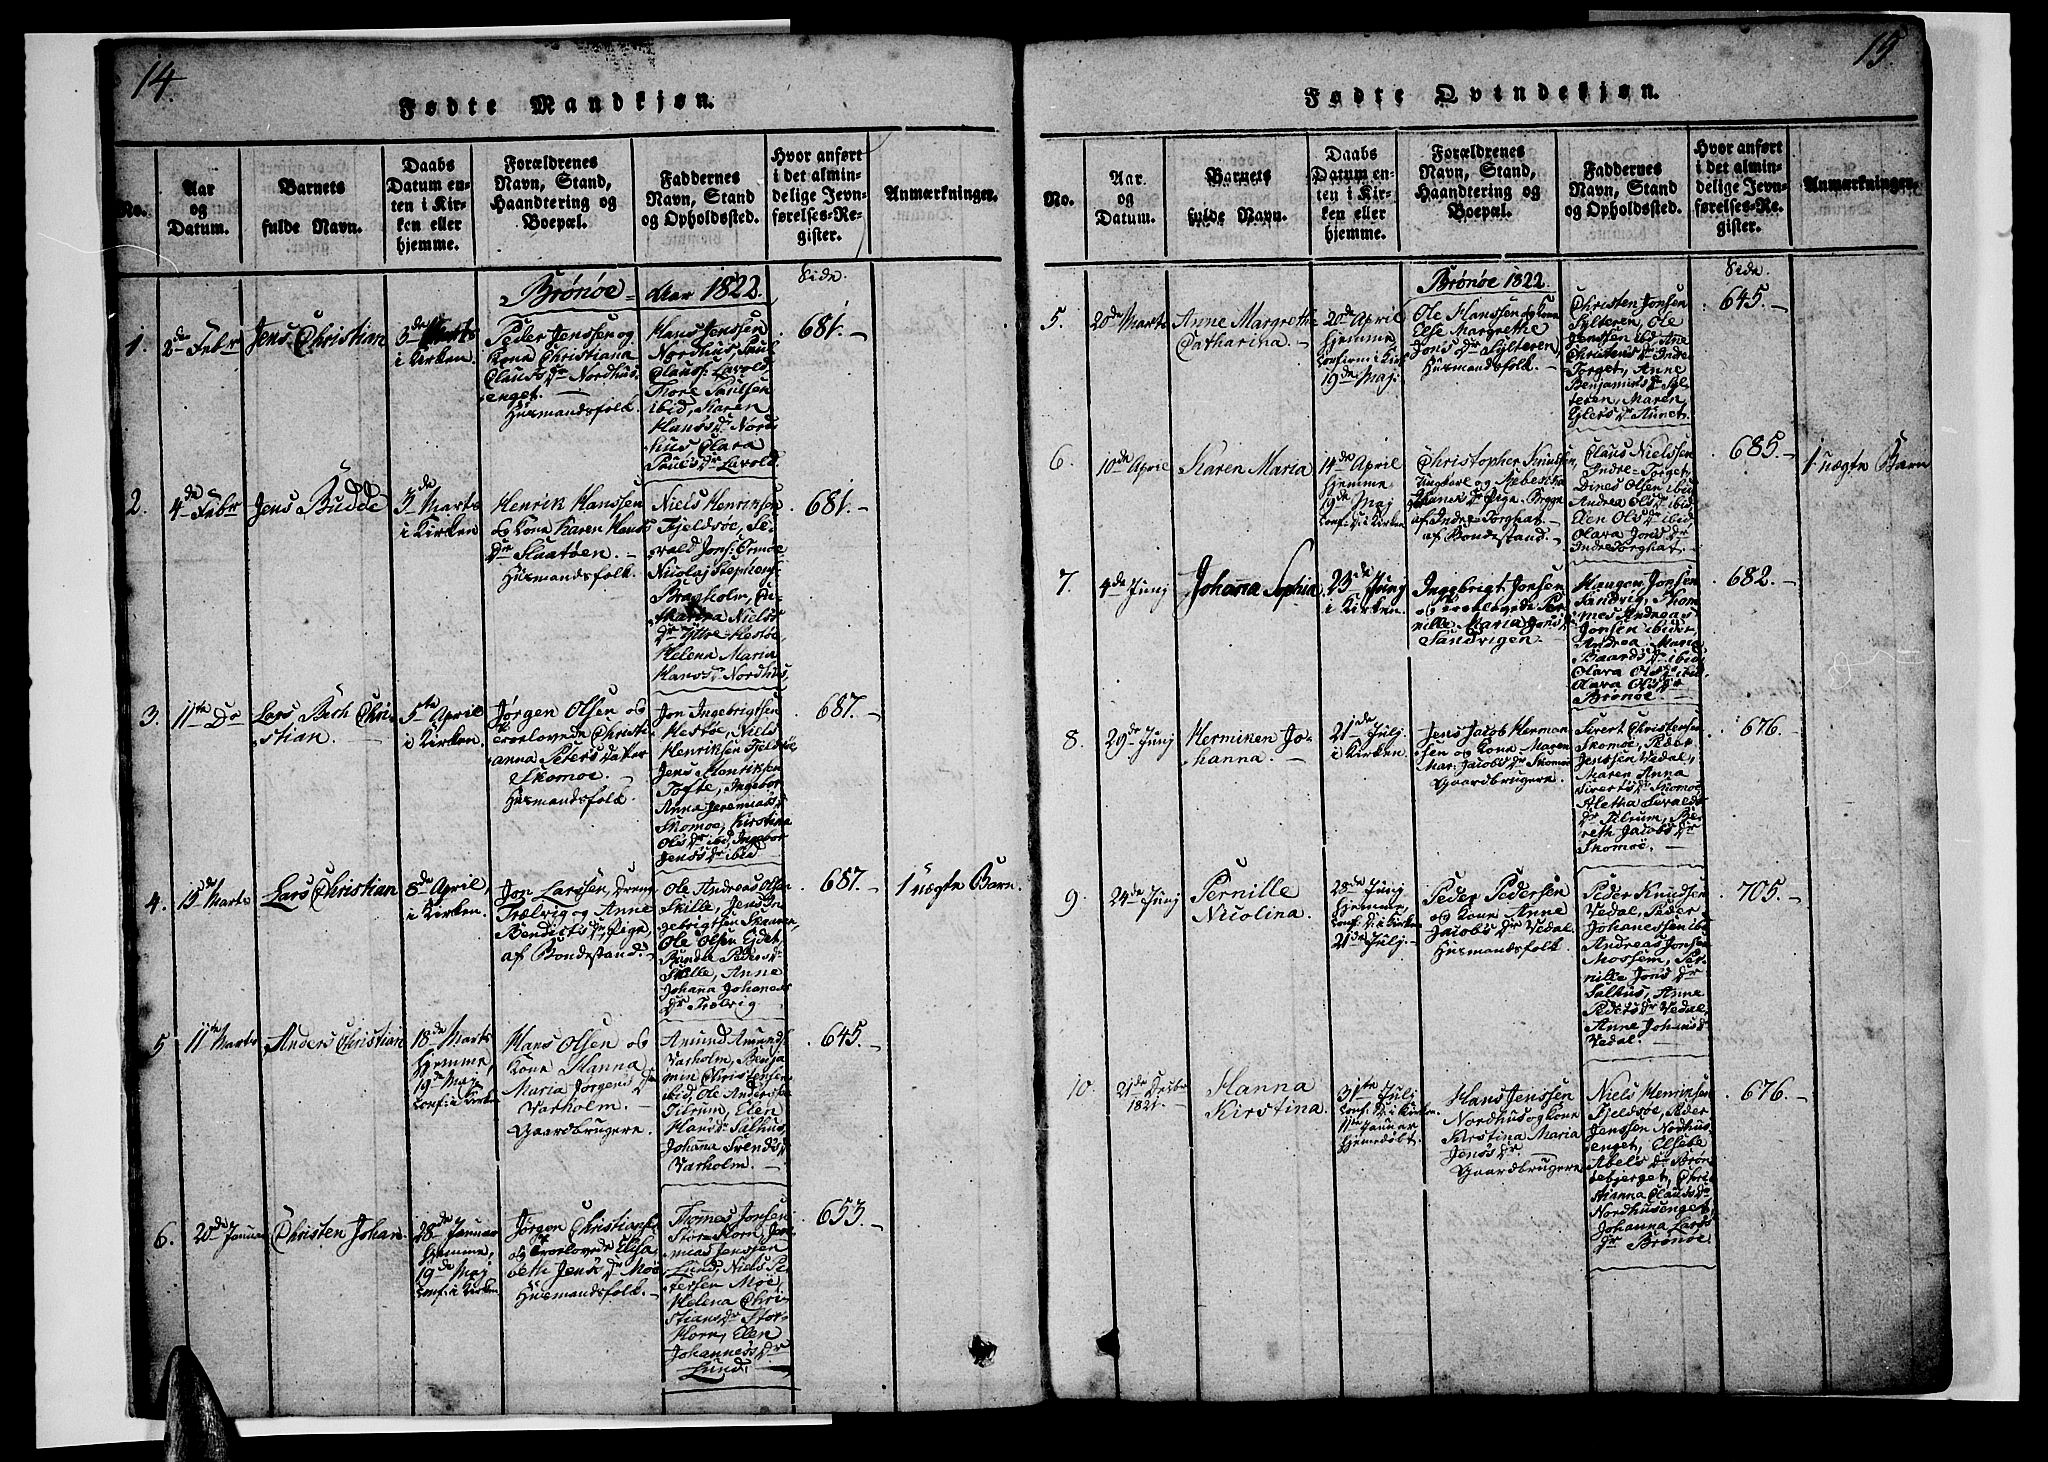 14.
Fødte Mandkjøn.
No.
Aar
og
Datum.
Barnets
fulde Navn.
Daabs
Datum en-
ten i Kir-
ken eller
hjemme.
Forældrenes
Navn, Stand,
Haandtering og
Boepæl.
Faddernes
Navn, Stand
og Opholdssted.
Hvor anført
i det almin-
delige Jevn-
førelses-Re-
gister.
Anmærkninger.
Brønøe Aar 1822.
Side.
1.
2de Febr
Jens Christian
3de Marts
i Kirken.
Peder Jenssen og
Kone Christiana
Clausdr Nordhus-
enget.
Huusmandsfolk.
Hans Jenssen
Nordhus, Paul
Clauss: Lavold,
Thore Paulsen
ibid, Karen
Hansdr Nord-
hus Clara
Paulsdr Lavold.
681.
2.
4de Febr
Jens Budde
3de Marts
i Kirken
Henrik Hanssen
og Kone Karen Hans
Dr Slaatøen.
Huusmandsfolk.
Niels Henriksen
Fjeldsøe, Se-
vald Jons:
Nicolaj Stephens:
Bragholm,
Niels
Dr Yttre Hestøe,
Helena Maria
Hansdr Nordhus.
681.
3.
11te Do
Lars Bech Chri-
stian.
5te April
i Kirken.
Jørgen Olsen og
troelovede Christi-
anna Petersdatter
Skomoe.
Huusmandsfolk.
Jon Ingebrigtsen
Hestøe, Niels
Henriksen Fjeldsøe,
Jens Henriksen
Tofte, Ingebor
Anna Jeremiasdr
Skomoe, Kirstina
Olsdr ibid, Ingebor
Jensdr ibid
687.
4.
13de Marts
Lars Christian
8de April,
i Kirken.
Jon Larssen, Dreng
Trælvig og Anne
Bendictsdr Pige
af Bondestand.
Ole Andreas Olsen
Skille, Jens In-
gebrigtsen
Ole Olsen Eidet,
Pedersdr
Skille, Anne
Johanna Johanes
dr Trelvig
687.
1 uægte Barn.
5
11te Marts
Anders Christian
18de Marts
Hjemme,
19de Maj
Conf: i Kirken
Hans Olsen og
Kone Hanna
Maria Jørgensdr
Varholm.
Gaardbrugere.
Amund Amunds:
Varholm, Benja
min Christensen
ibid, Ole Anderssen
Tilrum, Elen
Hansdr Salhus,
Johanna Svendsdr
Varholm.
645.
6.
20de Januar
Christen Johan
28de Januar
Hjemme,
19de Maj
Conf: i Kirken
Jørgen Christians:
og troelovede Elisa
beth Jensdr Moe
Huusmandsfolk.
Thomes Jonsen
Stor-Horn, Jere-
mias Jenssen
Lund, Niels Pe-
tersen Moe,
Helena Chri-
stiansdr Stor-
Horn, Elen
Johannesdr
Lund,
653.
15.
Fødte Qvindekjøn.
No.
Aar.
og
Datum.
Barnets
fulde Navn.
Daabs
Datum en-
ten i Kir-
ken eller
hjemme.
Forældrenes
Navn, Stand,
Haandtering og
Boepæl.
Faddernes
Navn, Stand
og Opholdssted.
Hvor anført
i det almin-
delige Jevn-
førelses-Re-
gister.
Anmærkninger.
Brønøe 1822.
Side.
5.
20de Marts
Anne Margrethe
Catharina.
20de April
Hjemme
Confirm: i Kirk
19de Maj.
Ole Hanssen og Kone
Else Margrethe
Jonsdr Sylteren,
Huusmandsfolk.
Christen Jonsen
Sylteren, Ole
Jenssen ibid Ane
Christensdr Indre
Torget, Anne
Benjaminsdr Syl-
teren, Maren
Eylersdr Aunet.
645.
6.
10de April
Karen Maria
14de April
Hjemme
19de Maj
Conf: D: i Kirken
Christopher Knudsen,
Ungkarl og Rebecka
Pige
af Indre Torghat.
af Bondestand.
Claus Nielssen
Indre-Torget,
Dines Olsen ibid
Andrea Olsdr ibid
Elen Olsdr ibid
Olava Jonsdr
Indre Torghat.
685.
1 uægte Barn
7.
4de Junj
Johanna Sophia
23de Junj
i Kirken.
Ingebrigt Jonsen
og troelovede Per-
nille Maria Jonsdr
Sandvigen
Haagen Jonsen
Sandvig, Thom-
mes Andreas
Jonsen ibid,
Andrea Marie
Baardsdr ibid
Olava Olsdr ibid.
Olava Olsdr
Brønøe
682.
8.
29de Junj
Hermiken Jo-
hanna.
21de Julj
i Kirken.
Jens Jacob Herman
sen og Kone Maren
Mar: Jacobsdr Skomoe
Gaardbrugere.
Sivert Christensen
Skomoe, Peder
Jenssen Vedal,
Maren Anna
Sivertsdr Skomoe,
Aletha Sevalds
dr Tilrum, Be-
reth Jacobsdr
Skomoe.
676.
9.
24de Junj
Pernille
Nicolina.
28de Junj
Hjemme,
Conf: D: i Kirken
21de Julj.
Peder Pedersen
og Kone Anne
Jacobsdr Vedal.
Huusmandsfolk.
Peder Knudsen
Vedal, Peder
Johanessen ibid
Andreas Jonsen
Mossem, Per-
nille Jonsdr
Salhus, Anne
Pedersdr Vedal,
Anne Johansdr
Vedal.
705.
10.
21de Decbr
1821.
Hanna
Kirstina.
31te Julj
Conf: D: i Kirken.
11te Januar
Hjemedøbt.
Hans Jenssen
Nordhus og Kone
Kirstina Maria
Jensdr
Gaardbrugere
Niels Henriksen
Fjeldsøe, Peder
Jenssen Nordhus-
enget, Elsebe
Abelsdr Brøn
øebjerget, Chri
stianna Clausdr
Nordhusenget,
Johanna Lars
dr Brønøe.
676.